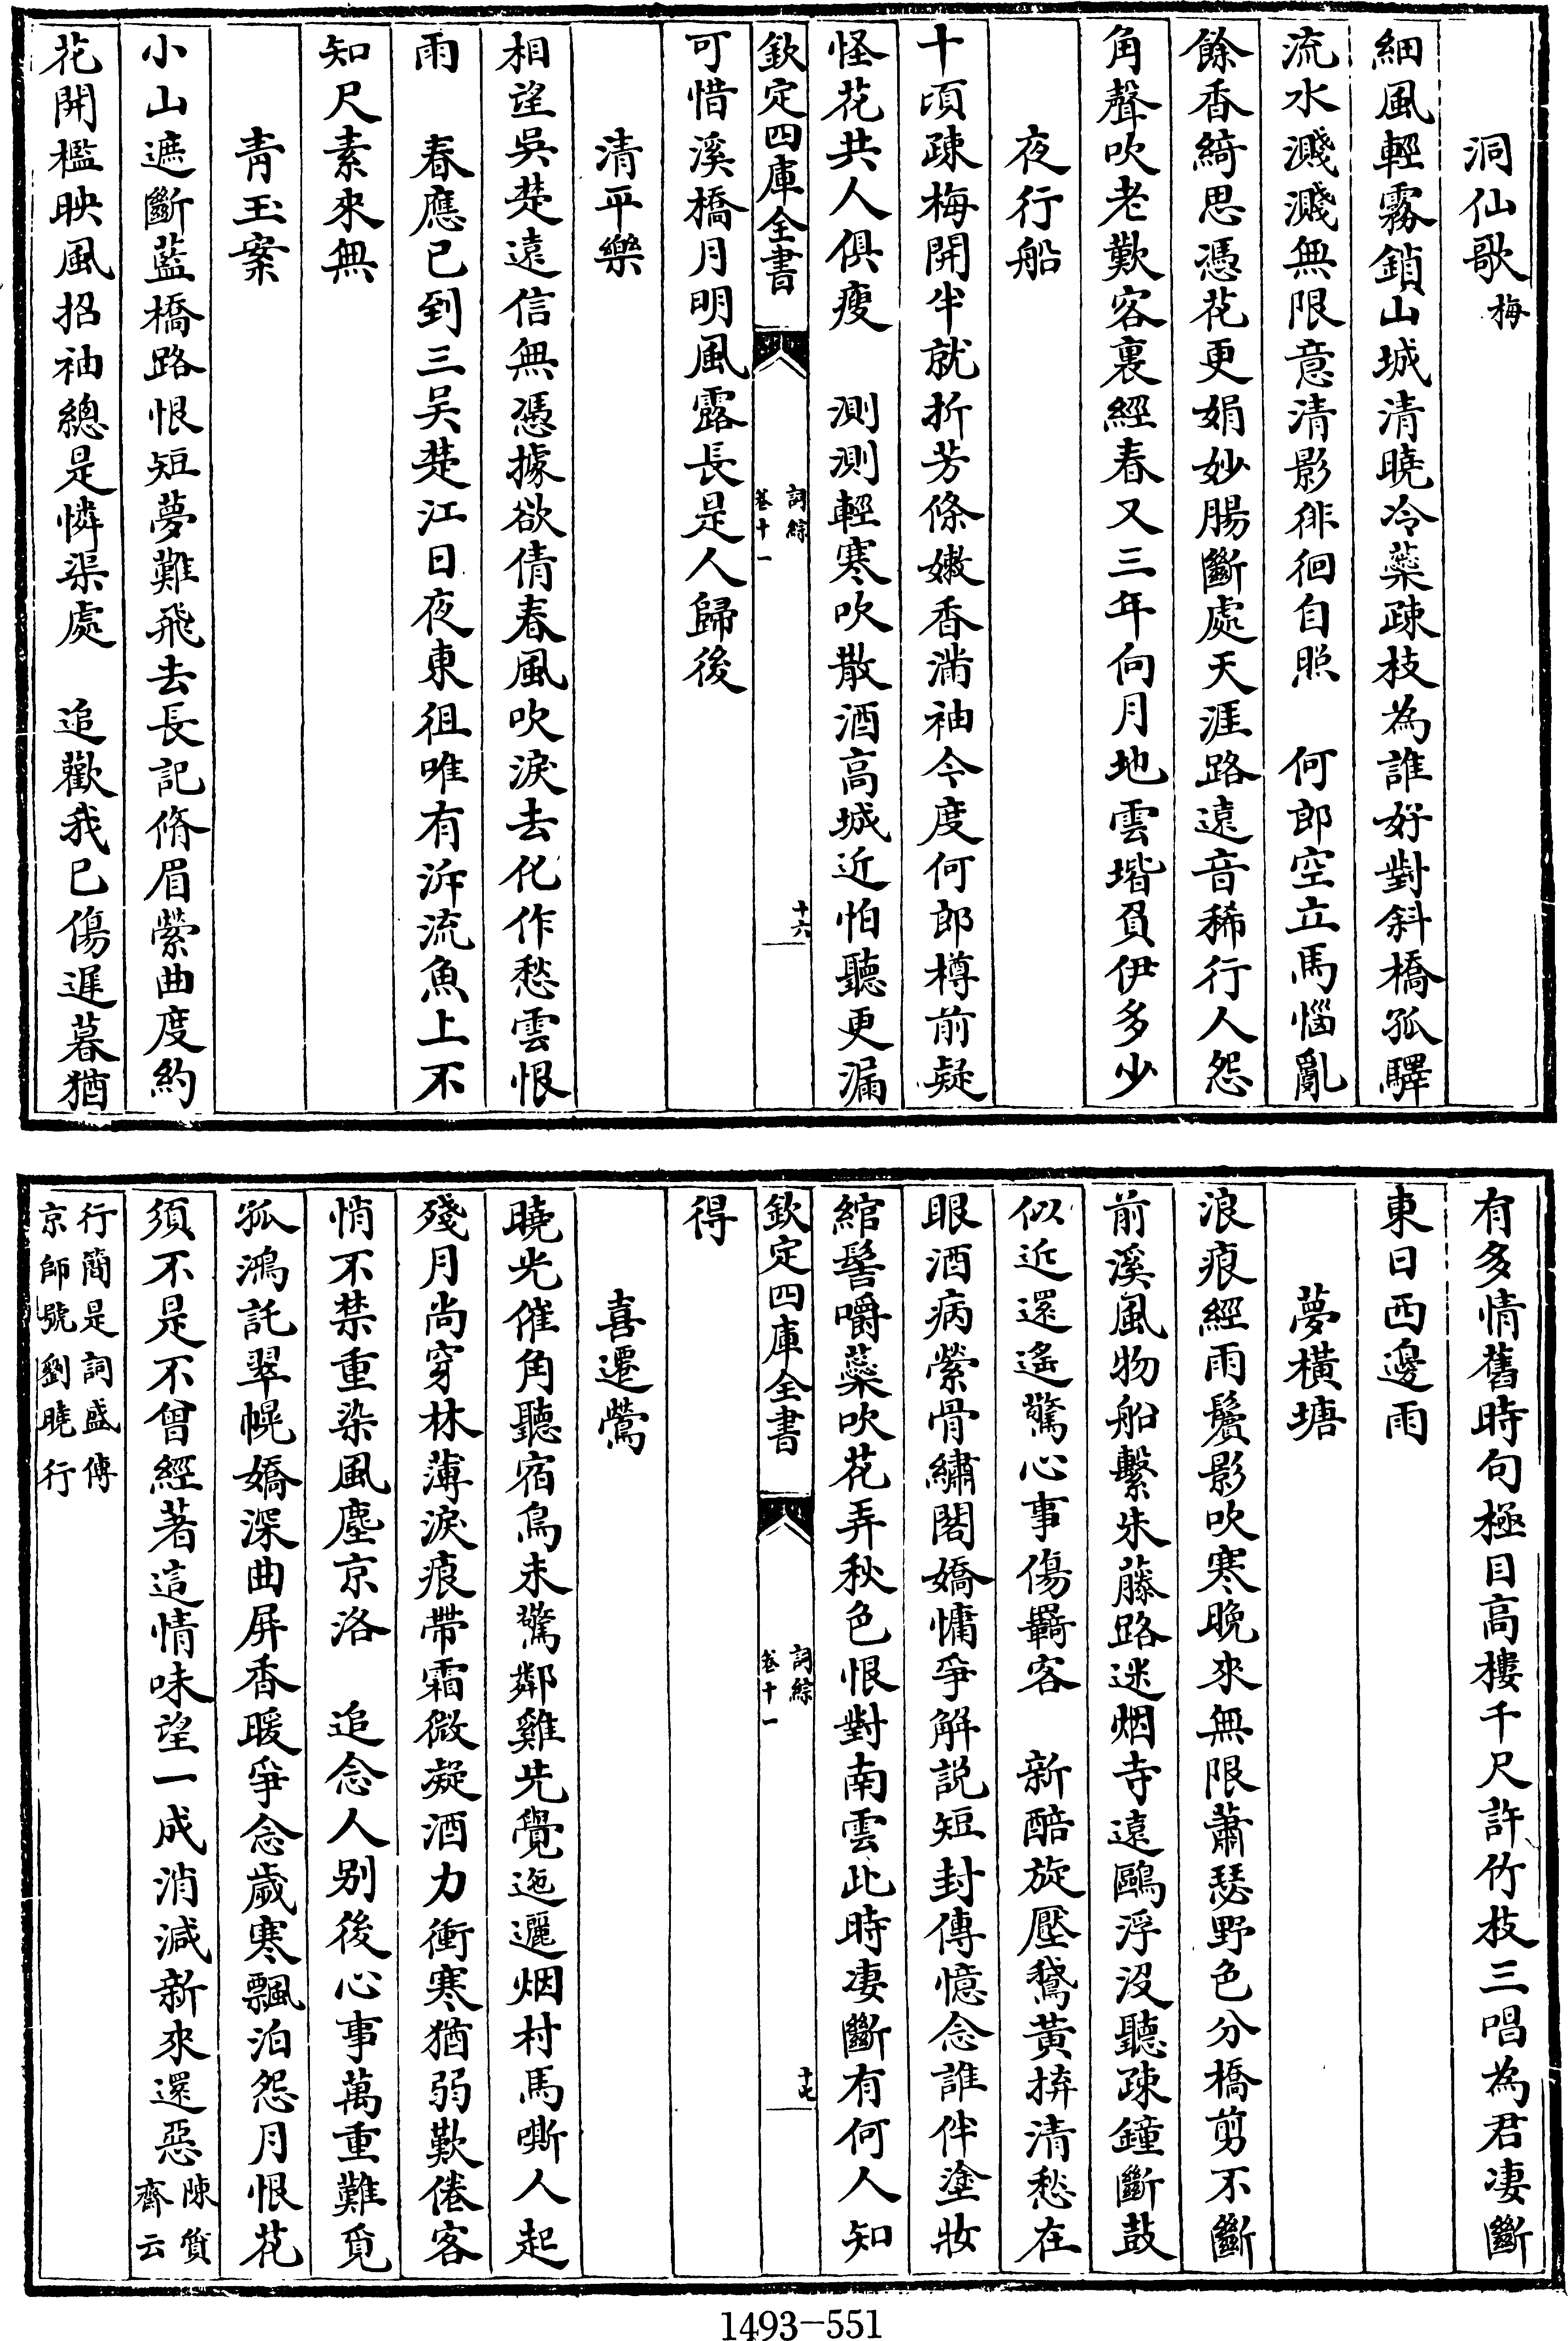 洞仙歌梅
細風輕霧鎖山城清曉冷蘂疎枝為誰好對斜橋孤驛
流水濺濺無限意清影徘徊自照　何郎空立馬惱亂
餘香綺思憑花更娟妙腸斷處天涯路遠音稀行人怨
角聲吹老歎客裏經春又三年向月地雲堦負伊多少
夜行船
十頃疎梅開半就折芳條嫩香滿袖今度何郎樽前疑
怪花共人俱瘦　測測輕寒吹散酒高城近怕聽更漏
欽定四庫全書
詞綜
卷十一
十六
可惜溪橋月明風露長是人歸後
清平樂
相望吳楚遠信無憑據欲倩春風吹淚去化作愁雲恨
雨　春應已到三吳楚江日夜東徂唯有泝流魚上不
知尺素來無
青玉案
小山遮斷藍橋路恨短夢難飛去長記脩眉縈曲度約
花開檻映風招袖總是憐渠處　追歡我已傷遲暮猶
有多情舊時句極目高樓千尺許竹枝三唱為君淒斷
東日西邊雨
夢橫塘
浪痕經雨鬢影吹寒晚來無限蕭瑟野色分橋剪不斷
前溪風物船繫朱藤路迷烟寺遠鷗浮没聽疎鐘斷鼓
似近還遙驚心事傷羇客　新醅旋壓鵞黃拚清愁在
眼酒病縈骨繡閣嬌慵爭解説短封傳憶念誰伴塗妝
綰髻嚼蘂吹花弄秋色恨對南雲此時凄斷有何人知
欽定四庫全書
詞綜
卷十一
十七
得
喜遷鶯
曉光催角聽宿鳥未驚鄰雞先覺迤邐烟村馬嘶人起
殘月尚穿林薄淚痕帶霜微凝酒力衝寒猶弱歎倦客
悄不禁重染風塵京洛　追念人别後心事萬重難覓
孤鴻託翠幌嬌深曲屏香暖爭念歲寒飄泊怨月恨花
須不是不曾經著這情味望一成消減新來還惡陳質
齊云
行簡是詞盛傳
京師號劉曉行
1493-551